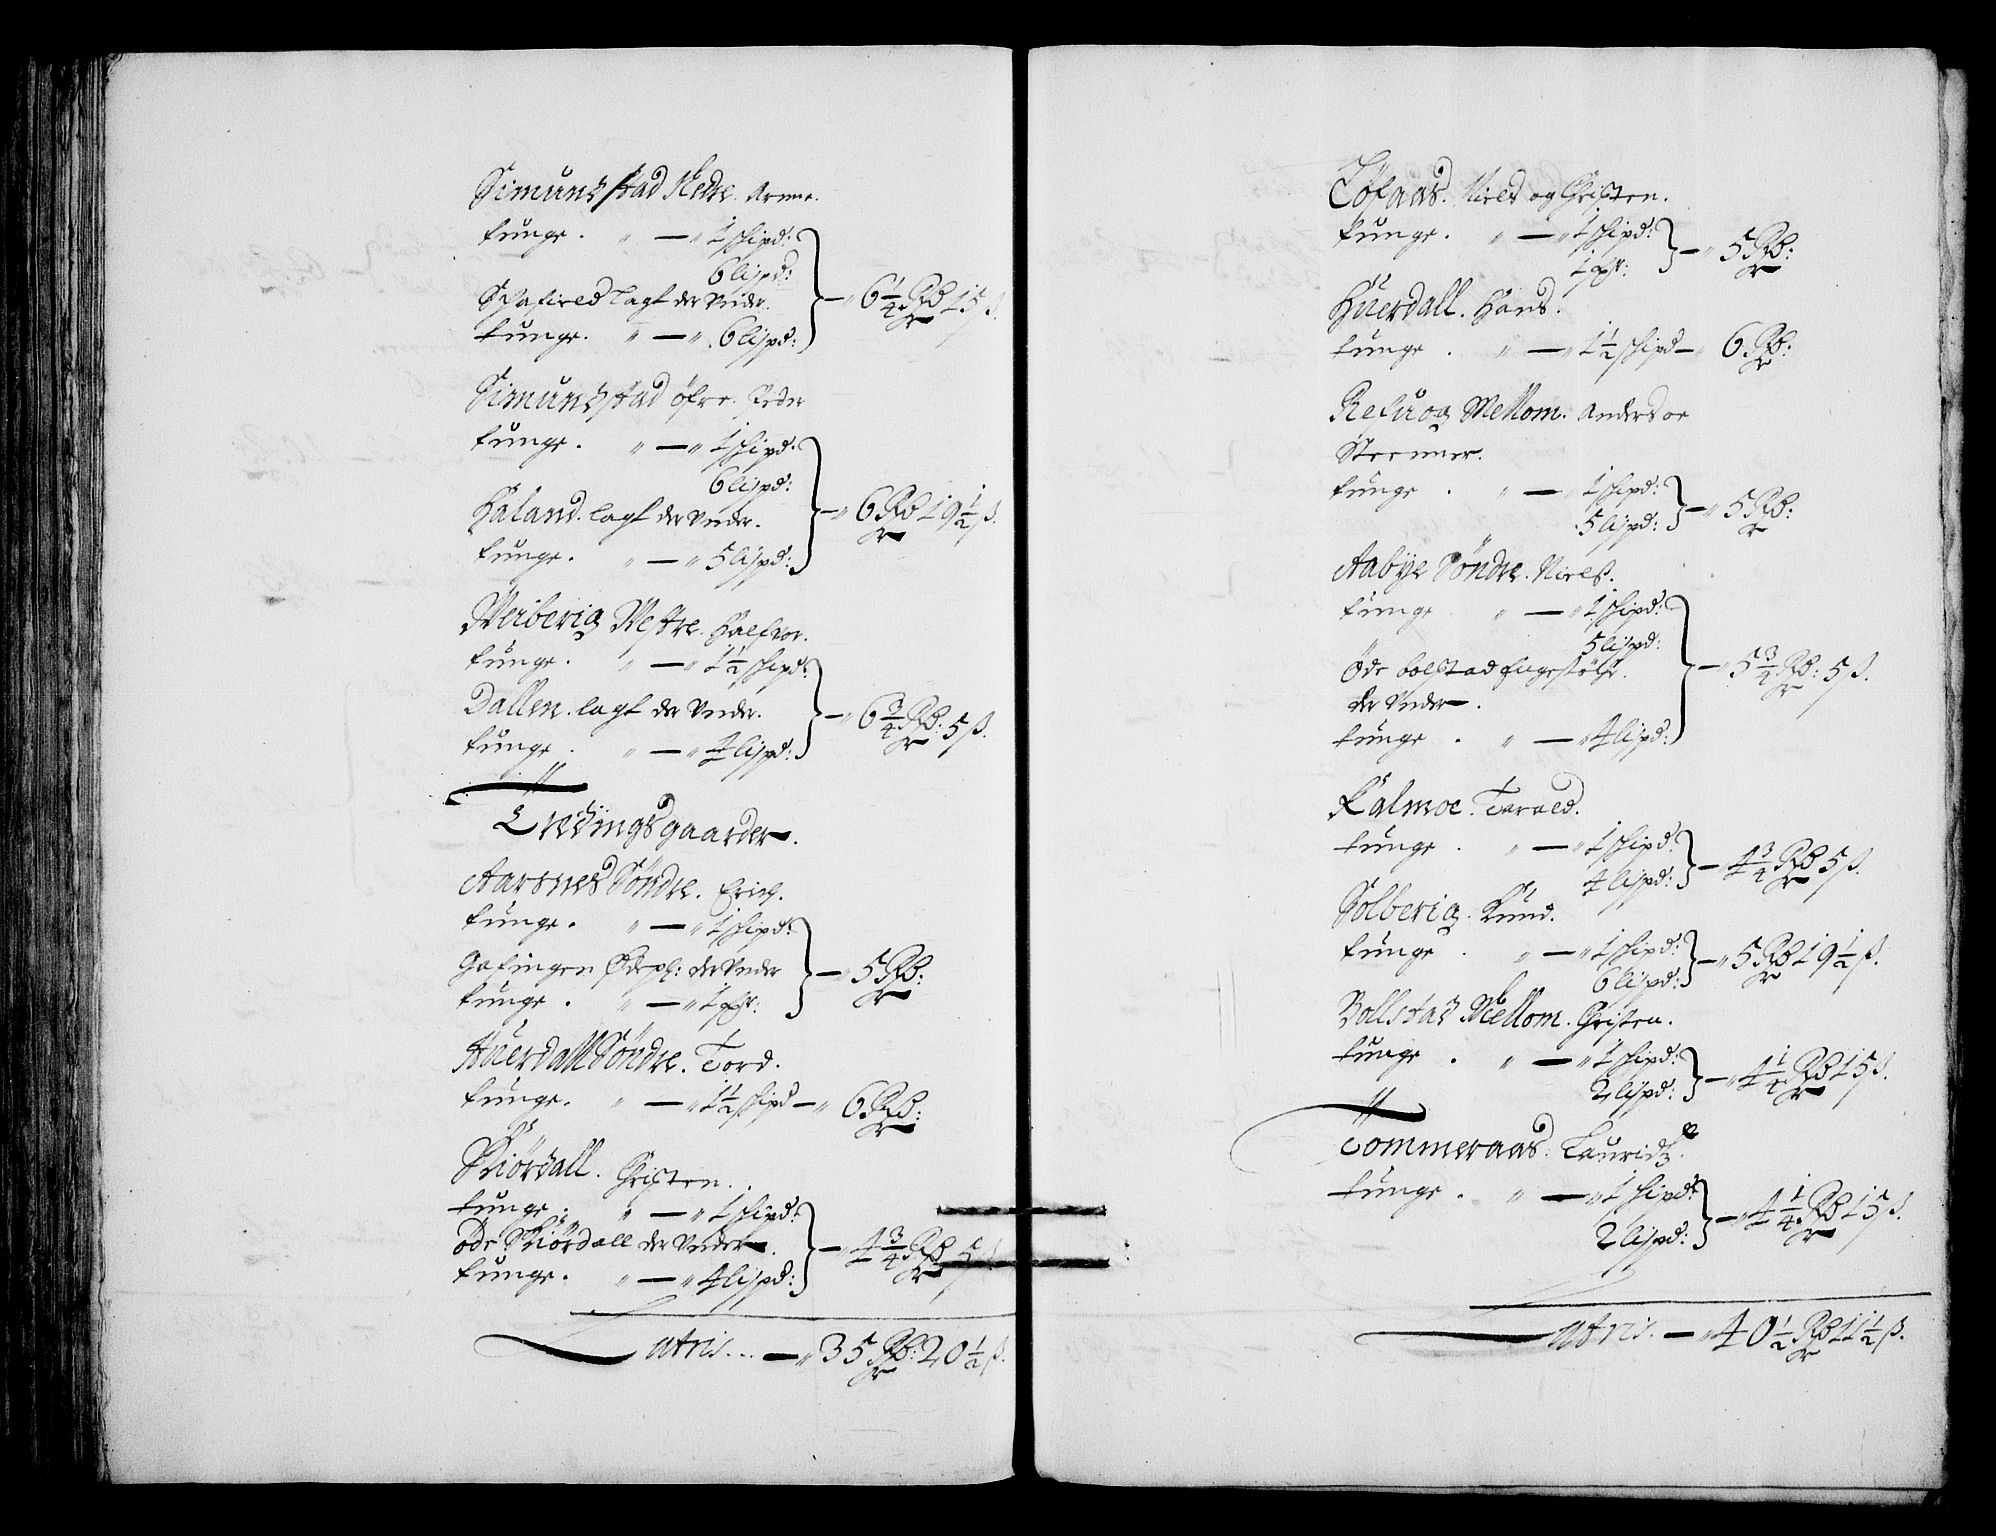 Simundstad Nedre. Arnne.
tunge. " — " 1 schipd:
6 lispd:
lagt der Under.
tunge. " — " 6 lispd: } — " 6 1/4 Rd 15 ß.
Simundstad öfre. Peder
tunge. " — " 1 schipd:
6 lispd:
Haland. lagt der Under.
tunge. " — " 5 lispd: } — " 6 Rd 19 1/2 ß.
Meiberig Westre. Halfvor.
tunge. " — " 1 1/2 schipd:
Dallen. lagt der Under.
tunge. " — " 4 lispd: } — " 6 3/4 Rd: 5 ß.
Ødingsgaarder.
Aarsnes Söndre. Erich.
tunge. " — " 1 schipd:
Ødepl: der Under
tunge. " — " 1 pfr: } — " 5 Rd:
Huerdall Söndre. Tord.
tunge. " — " 1 1/2 schipd — " 6 Rd:
Skiördall. Christen.
tunge. " — " 1 schipd:
öde Skiördall der Under.
tunge. " — " 4 lispd: } — " 4 3/4 Rd 5 ß.
Latris... — " 35 Rd: 20 1/2 ß.
Töfaas. Niels og Christen.
tunge. " — " 1 schipd:
1 pfr: } — " 5 Rd:
Huerdall. Hans.
tunge. " — " 1 1/2 schipd — " 6 Rd:
Refuog Mellom. Anders oc
Steenner.
tunge. " — " 1 schipd:
5 lispd: } — " 5 Rd:
Aabye Söndre. Niels.
tunge " — " 1 schipd:
5 lispd:
öde bolstad
der Under.
tunge. " — " 4 lispd: } — " 5 3/4 Rd: 5 ß.
Kalmoe. Tarald.
tunge. " — " 1 schipd:
4 lispd: } — " 4 3/4 Rd 5 ß.
Solberig. Knud.
tunge. " — " 1 schipd:
6 lispd: } — " 5 Rd 19 1/2 ß.
Bollstad Mellom. Christen.
tunge. " — " 1 schipd:
2 lispd: } — " 4 1/4 Rd 15 ß.
Tommeraas. Lauridtz.
tunge. " — " 1 schipd:
2 lispd: } — " 4 1/4 Rd 15 ß.
Latris. — " 40 1/2 Rd 11 1/2 ß.